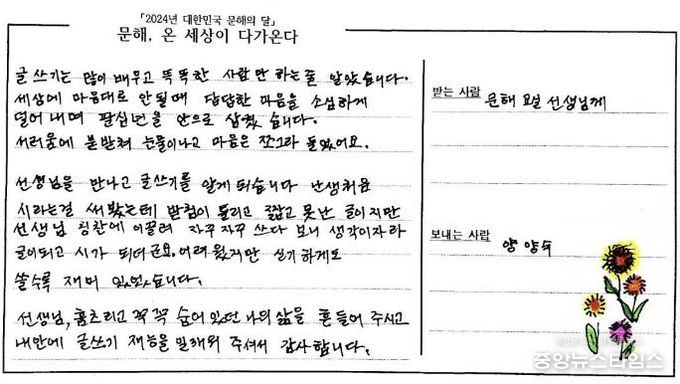 「2024년 대한민국 문해의 달」
문해, 온 세상이 다가온다
글 쓰기는 많이 배우고 똑똑한 사람만 하는줄 알았습니다.
세상에 마음대로 안될때 답답한 마음을 소심하게
덜어내며 팔십년을 안으로 삼켰습니다.
서러움에 본받쳐 눈물이나고 마음은 쪼그라 들었어요.
선생님을 만나고 글쓰기를 알게 되습니다 난생처음
시라는걸 써봤는데 받침이 틀리고 글짧고 못난 글이지만
선생님 칭찬에 이끌려 자꾸자꾸 쓰다 보니 생각이자라
글이되고 시가 되더군요. 어려웠지만 신기하게도
쓸수록 재미 있었습니다.
선생님, 움츠리고 꼭꼭 숨어 있던 나의 삶을 흔들어 주시고
내안에 글쓰기 재능을 일깨워 주셔서 감사합니다.
받는 사람 문해 교실 선생님께
보내는 사람 양양숙
중앙뉴스타임스